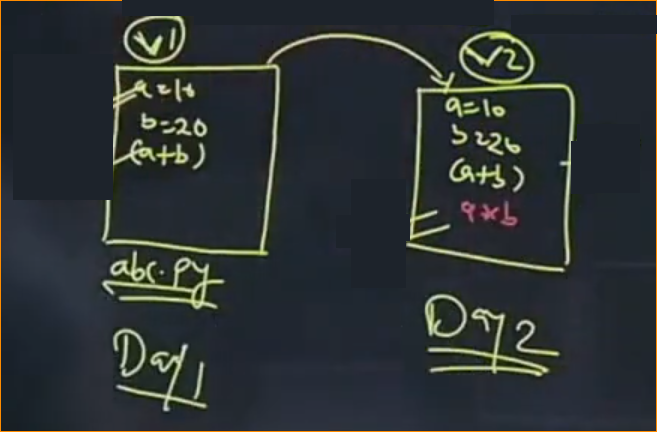 v1
a=10
b=20
(a+b)
abc.py
Day 1
v2
a=10
b=20
(a+b)
a*b
Day 2